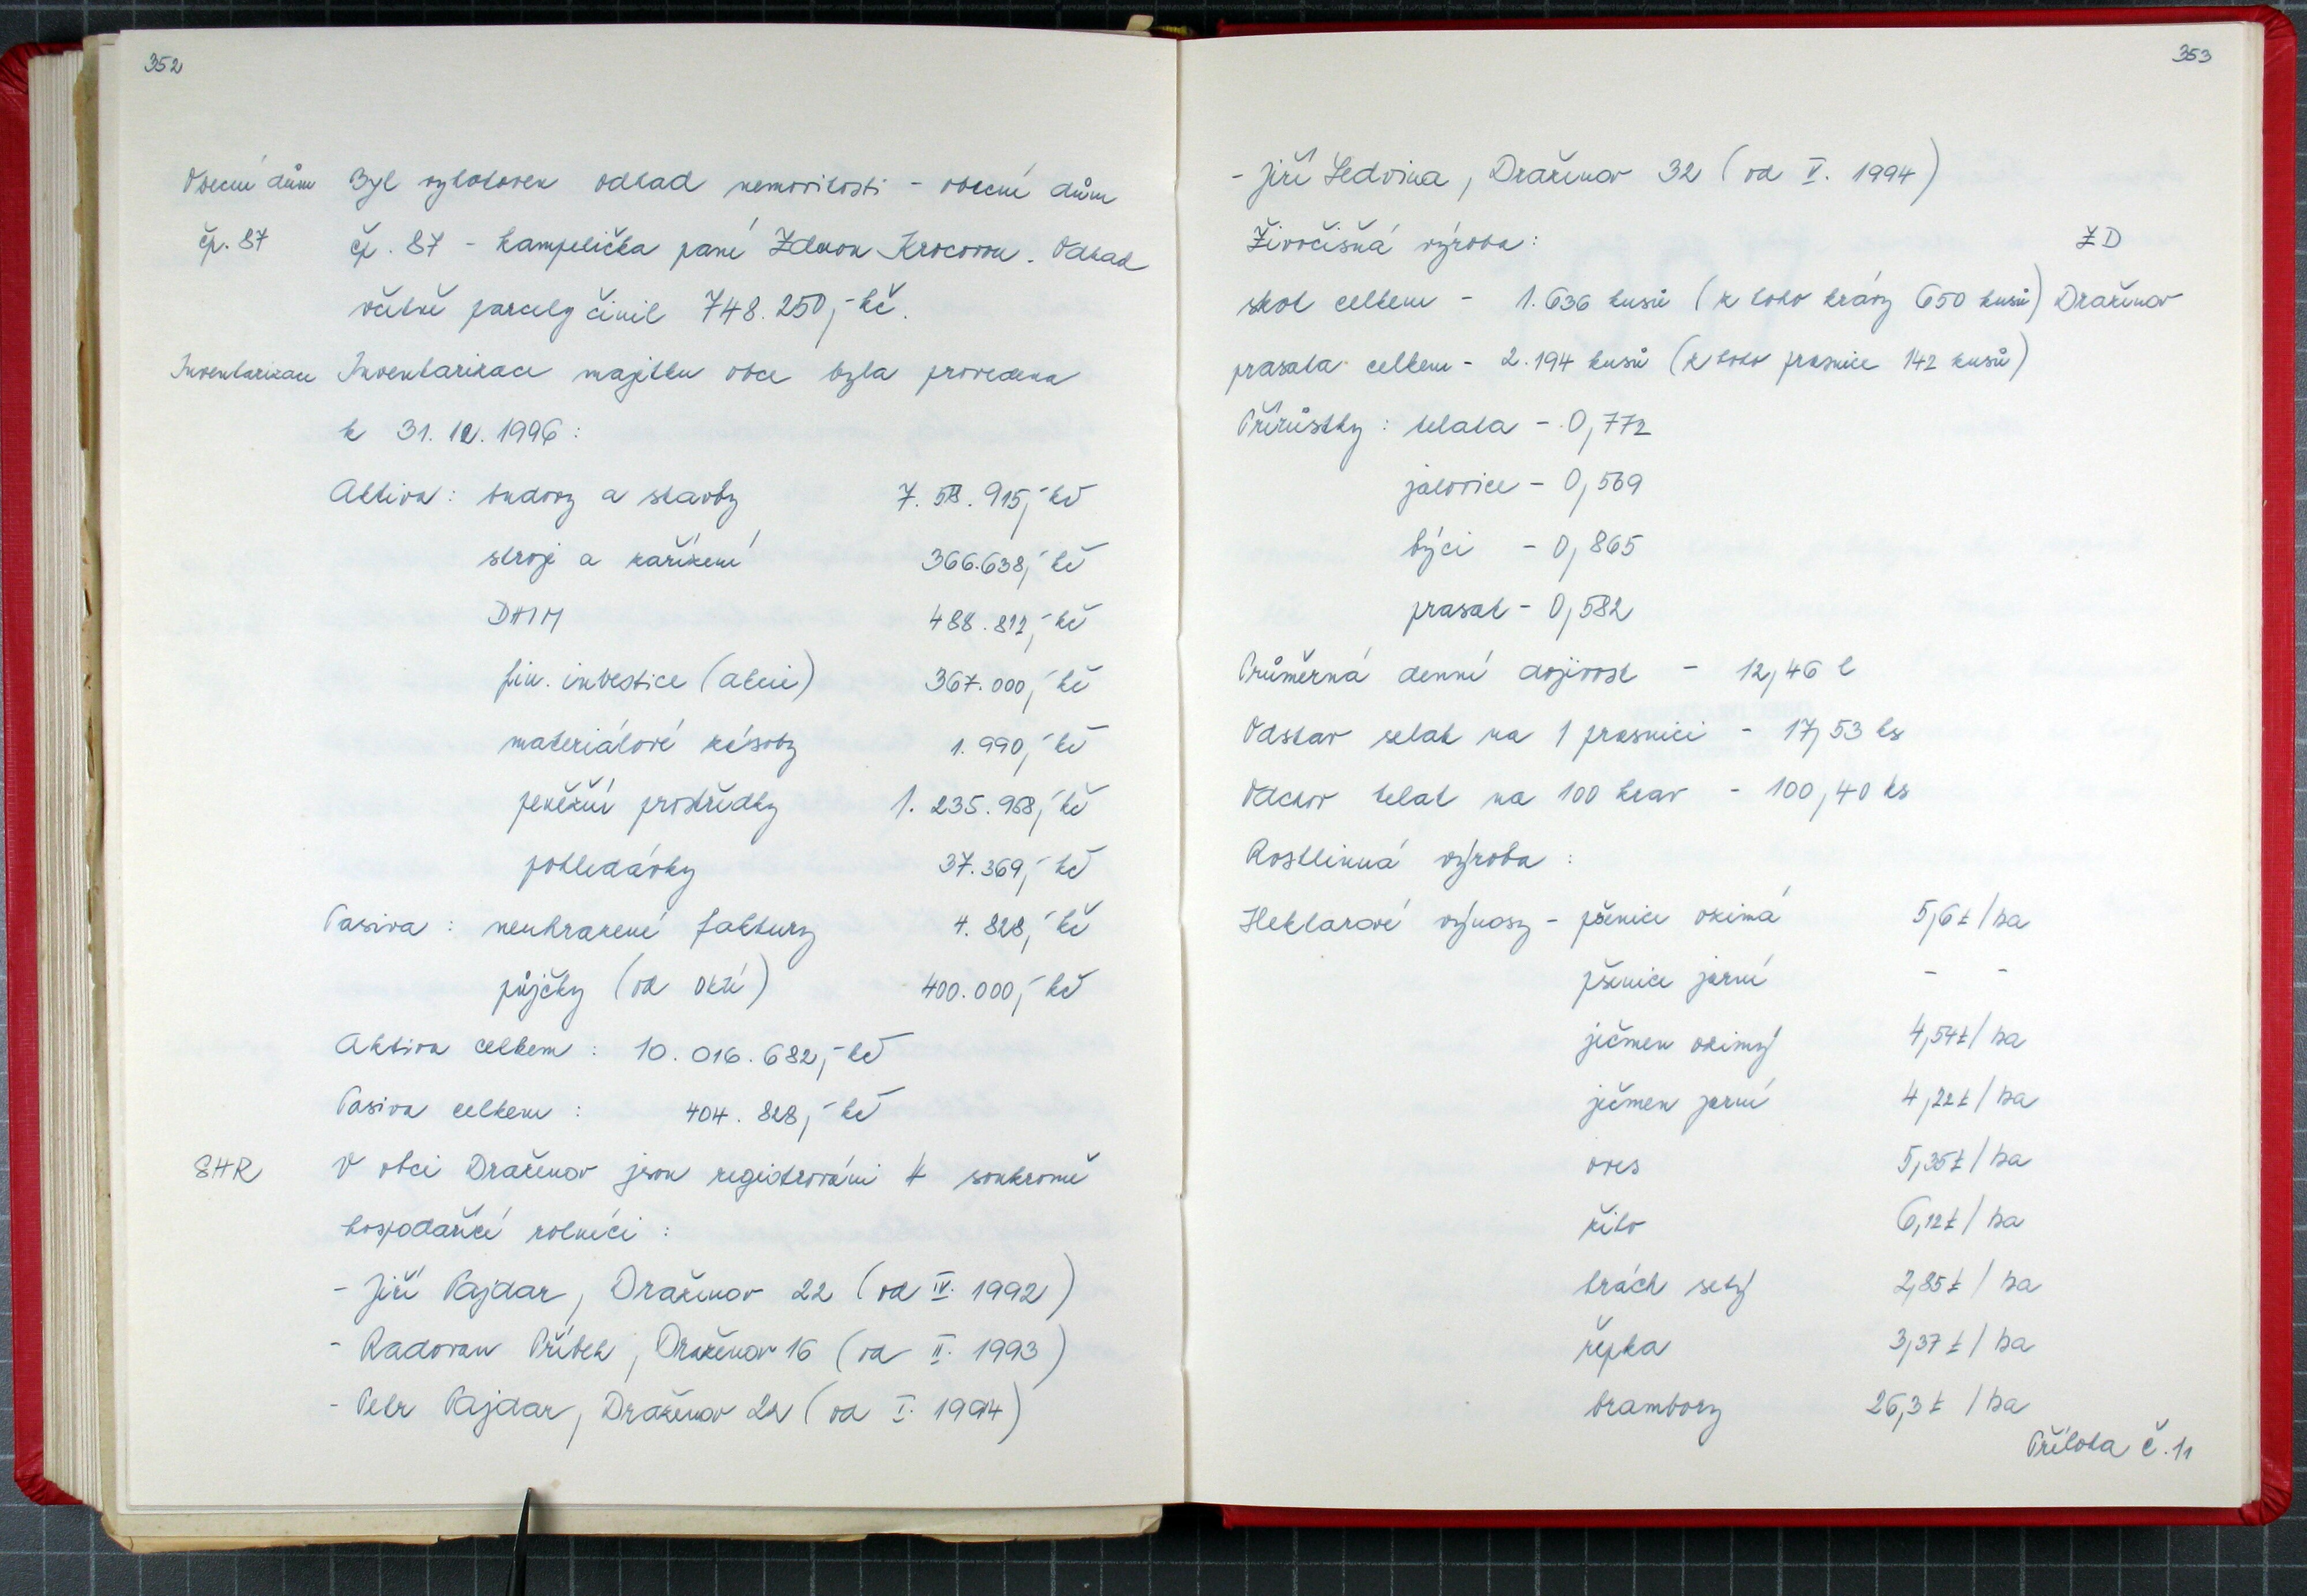 352
Obecní dům Byl vyhotoven odhad nemovitosti - obecní dům
čp. 87 čp. 87 - kampelička paní Zdenou Krocovou. Odhad
včetně parcely činil 748.250,- kč.
Inventarizace Inventarizace majetku obce byla provedena
k 31. 12. 1996:
Aktiva: budovy a stavby 7. 518. 915,- kč
stroje a zařízení 366.638,- kč
DHIM 488.812,- kč
fin. investice (akcie) 367.000,- kč
materiálové zásoby 1.990,- kč
peněžní prostředky 1. 235.958,- kč
pohledávky 37.369,- kč
Pasiva: neuhrazené faktury 4. 828,- kč
půjčky (od OkÚ) 400.000,- kč
Aktiva celkem: 10. 016. 682,- kč
Pasiva celkem: 404. 828,- kč
SHR V obci Draženov jsou registrováni 4 soukromě
hospodařící rolníci:
- Jiří Pajdar, Draženov 22 (od IV. 1992)
- Radovan Příbek, Draženov 16 (od II. 1993)
- Petr Pajdar, Draženov 22 (od I. 1994)
353
- Jiří Ledvina, Draženov 32 (od V. 1994)
Živočišná výroba: ZD
skot celkem - 1.636 kusů (z toho krávy 650 kusů) Draženov
prasata celkem - 2.194 kusů (z toho prasnice 142 kusů)
Přírůstky: telata - 0,772
jalovice - 0,569
býci - 0,865
prasat - 0,582
Průměrná denní dojivost - 12,46 l
Odstav selat na 1 prasnici - 17,53 ks
Odchov telat na 100 krav - 100,40 ks
Rostlinná výroba:
Hektarové výnosy - pšenice ozimá 5,6 t/ha
pšenice jarní - -
ječmen ozimý 4,54 t/ha
ječmen jarní 4,22 t/ha
oves 5,35 t/ha
žito 6,12 t/ha
hrách setý 2,85 t/ha
řepka 3,37 t/ha
brambory 26,3 t/ha
Příloha č. 11